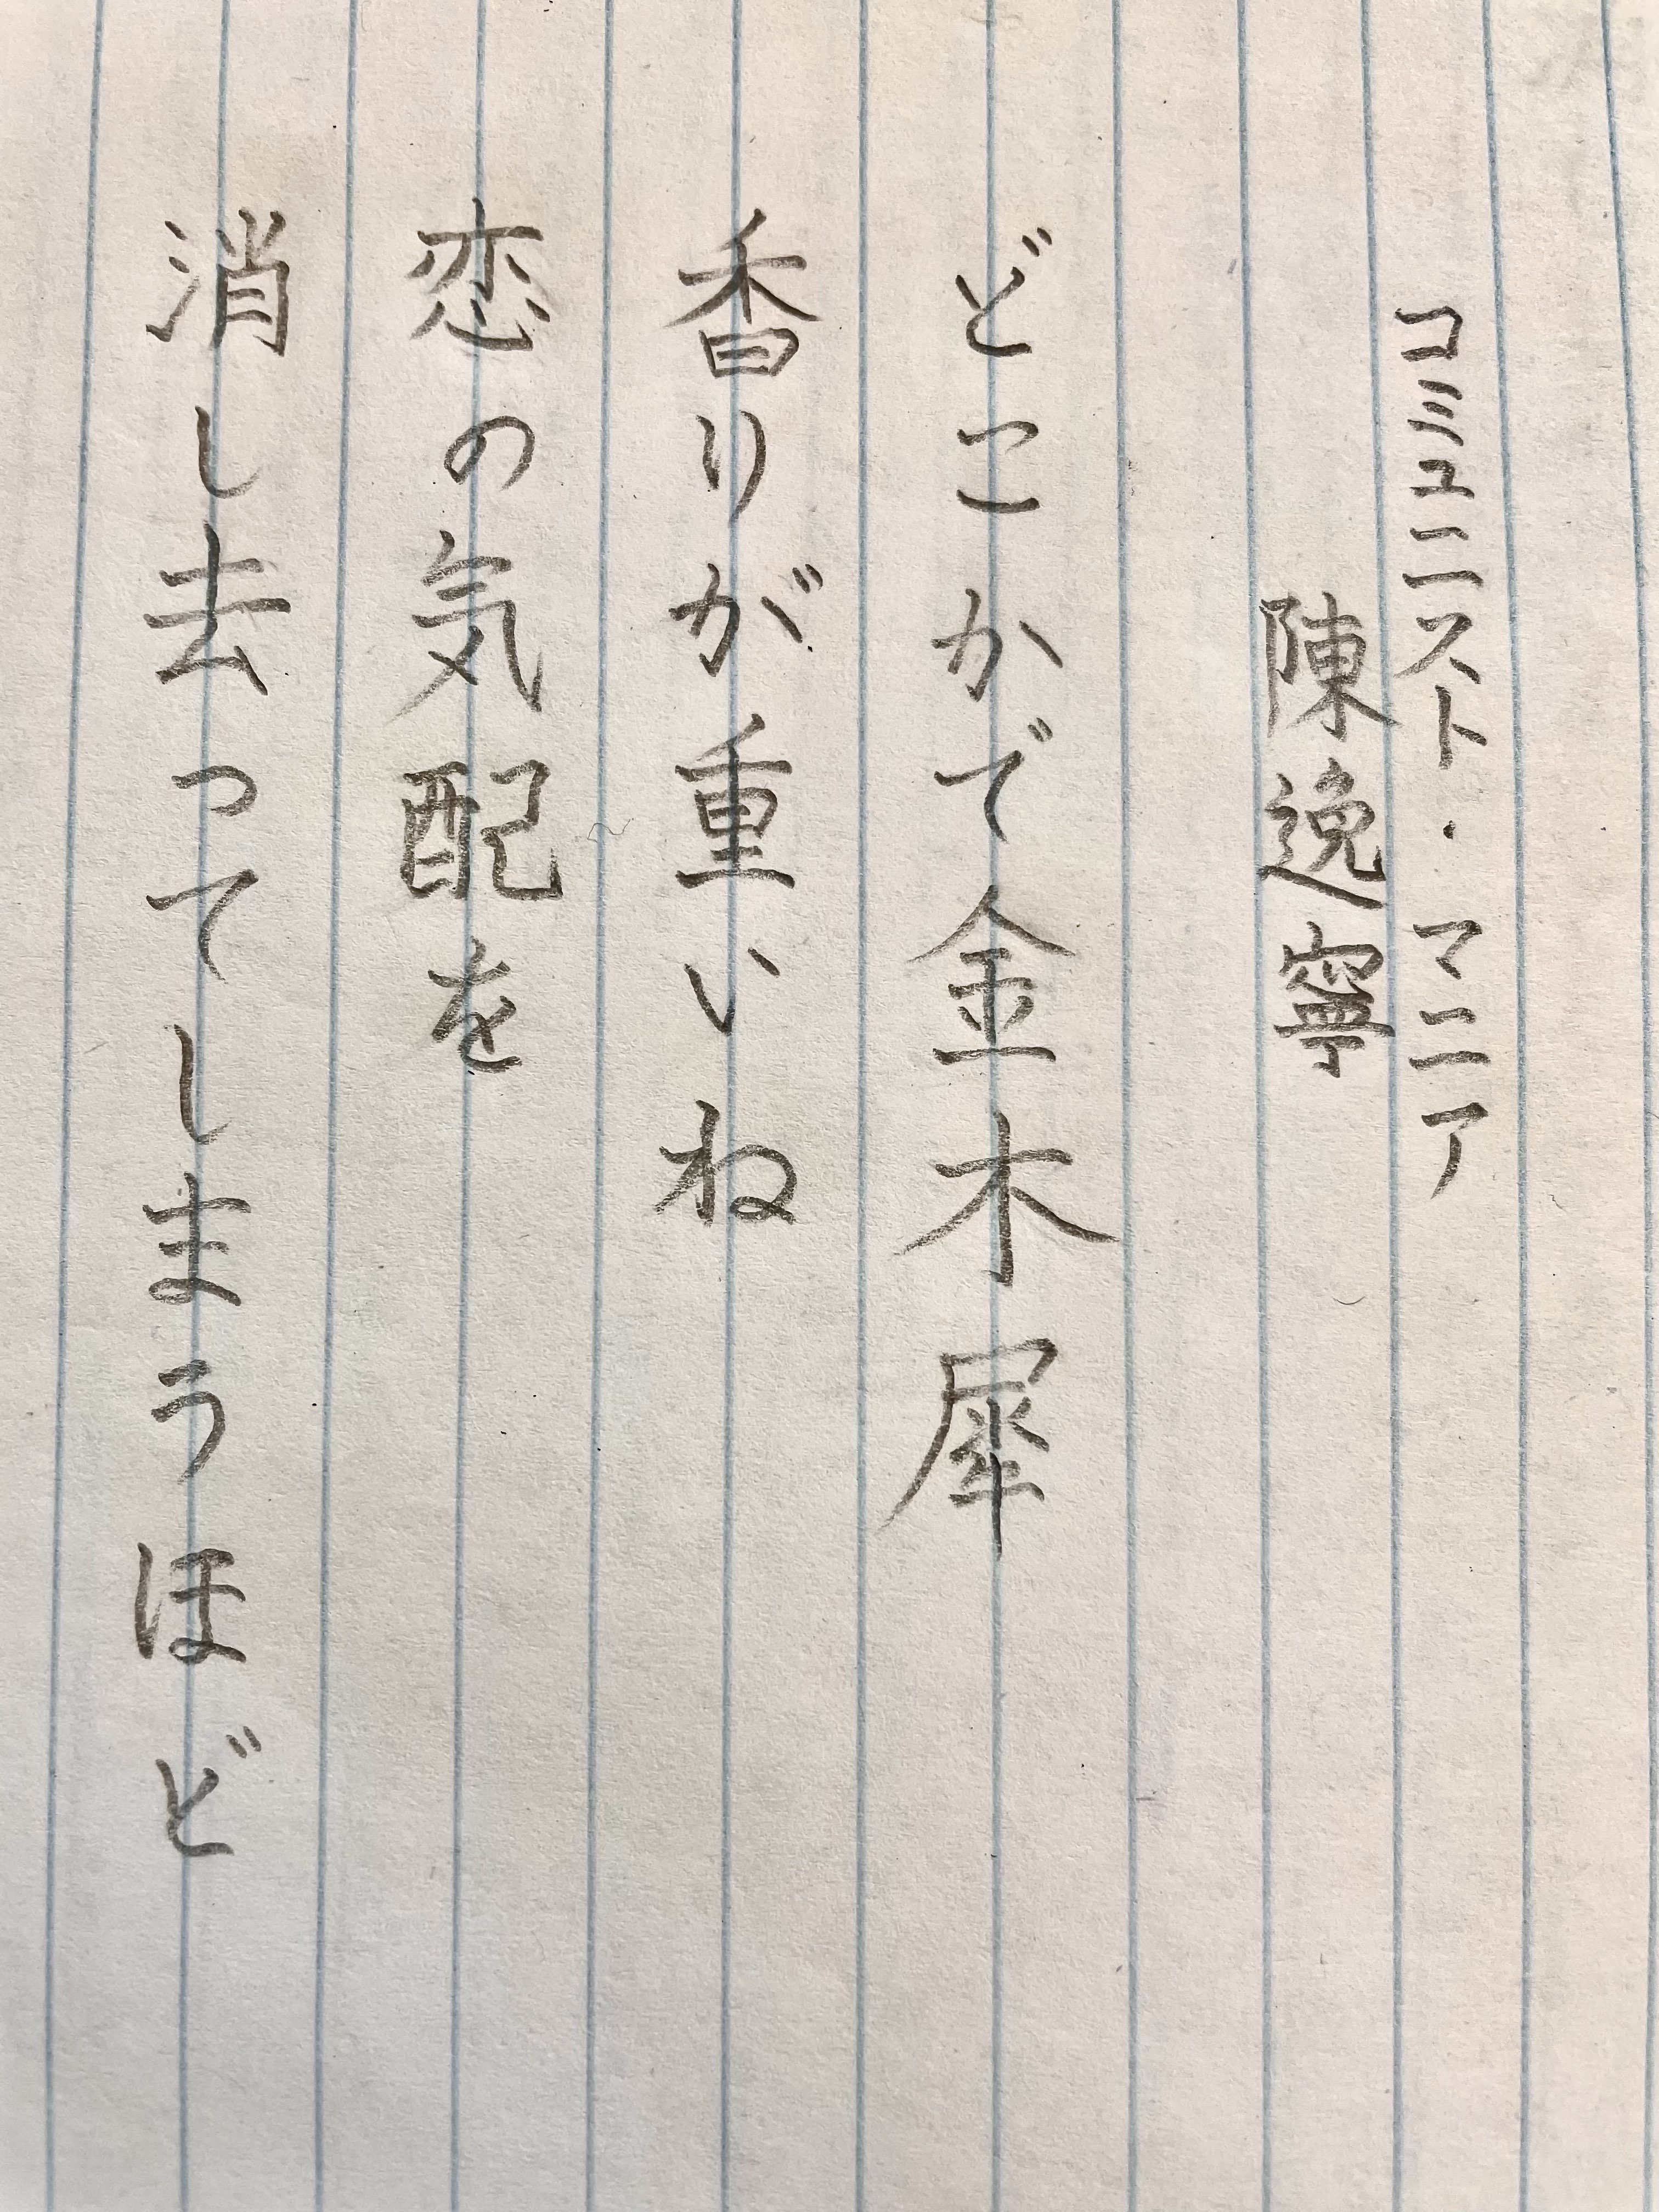 コミュニスト・マニア
陳逸寧
どこかで金木犀
香りが重いね
恋の気配を
消し去ってしまうほど